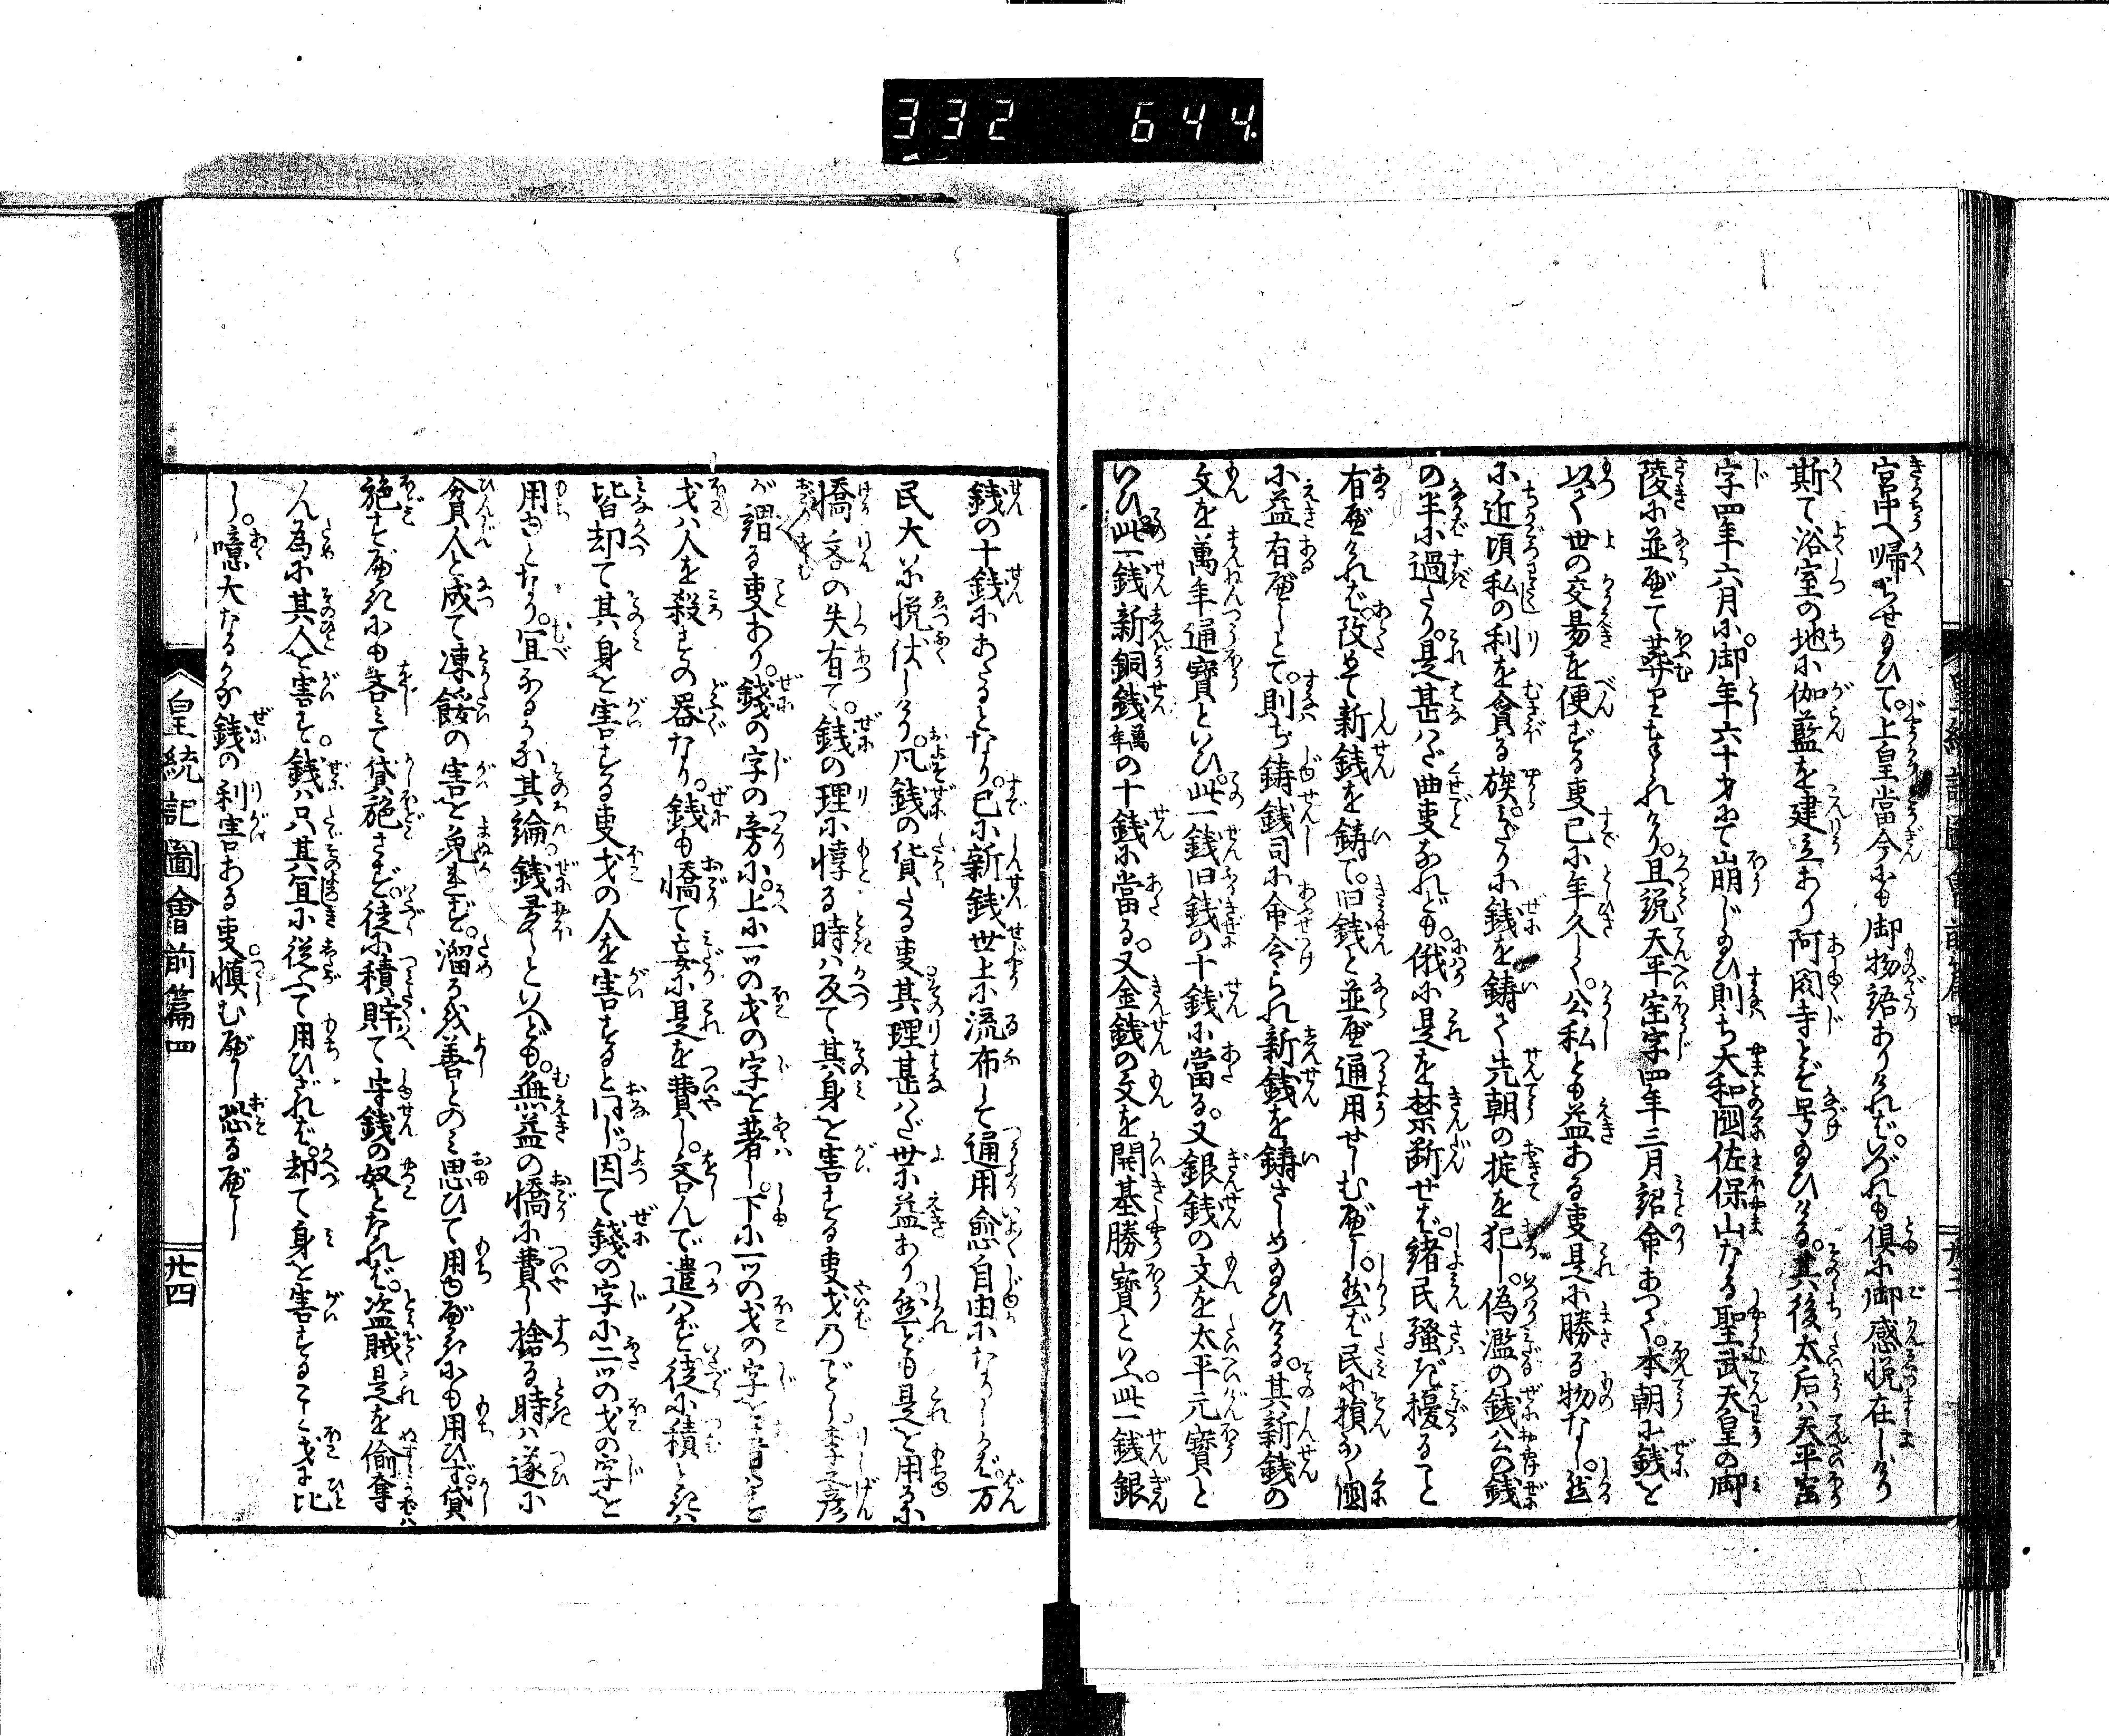 332 644
宮中へ帰らせ給ひて。上皇當今にも御物語ありければ。いづれも倶に御感悦在しけり
斯て浴室の地に伽藍を建立あり阿閦寺とぞ号給ひける。其後太后ハ天平宝
字四年六月に。御年六十才にて崩じ給ひ則ち大和國佐保山なる聖武天皇の御
陵に並べて葬りまゐらせけり。且説天平宝字四年三月詔命あつて。本朝に銭を
以て世の交易を便ずる叓已に年久しく。公私とも益ある叓是に勝る物なし。然
に近頃私の利を貪る族。みだりに銭を鋳て先朝の掟を犯し。偽濫の銭公の銭
の半に過たり。是甚ハだ曲叓なれども。俄に是を禁断せバ。諸民騒ぎ擾ること
有べければ。改めて新銭を鋳て。旧銭と並べ通用せしむべし。然ば民に損なく國
に益有べしとて。則ち鋳銭司に命令られ新銭を鋳さしめ給ひける。其新銭の
文を萬年通寳といひ。此一銭旧銭の十銭に當る。又銀銭の文を太平元寳と
いひ此一銭新銅銭萬年の十銭に當る。又金銭の文を開基勝寳といふ。此一銭銀
銭の十銭にあたるとなり。已に新銭世上に流布して通用愈自由になりしかバ。万
民大に悦伏しけり。凡銭の貨たる叓。其理甚ハだ世に益あり。然ども是を用るに
憍吝の失有て。銭の理に悖る時ハ反て其身を害する叓戈乃どし。李之彦
が謂る叓あり。銭の字の旁に。上に一ツの戈の字を著し。下に一ツの戈の字を著すと
戈ハ人を殺すの器なり。銭も憍て妄に是を費し。吝んで遣ハず徒に積ときハ
皆却て其身を害する叓戈の人を害するに同じ。因て錢の字に二ツの戈の字を
用ゆとなり。冝なるかな其論。銭多しといへども。無益の憍に費し捨る時ハ遂に
貧人と成て凍餒の害を免れず。溜るを善とのミ思ひて用ゆべきにも用ひず。貸
施すべきにも吝ミて貸施さず。徒に積貯て守銭の奴となれば。盗賊是を偸奪
ん為に其人を害す。銭ハ只其冝に従ふて用ひざれば。却て身を害することく戈に比
し。噫大なるかな銭の利害ある叓。慎むべし恐るべし
皇統記圖會前篇四
廿四